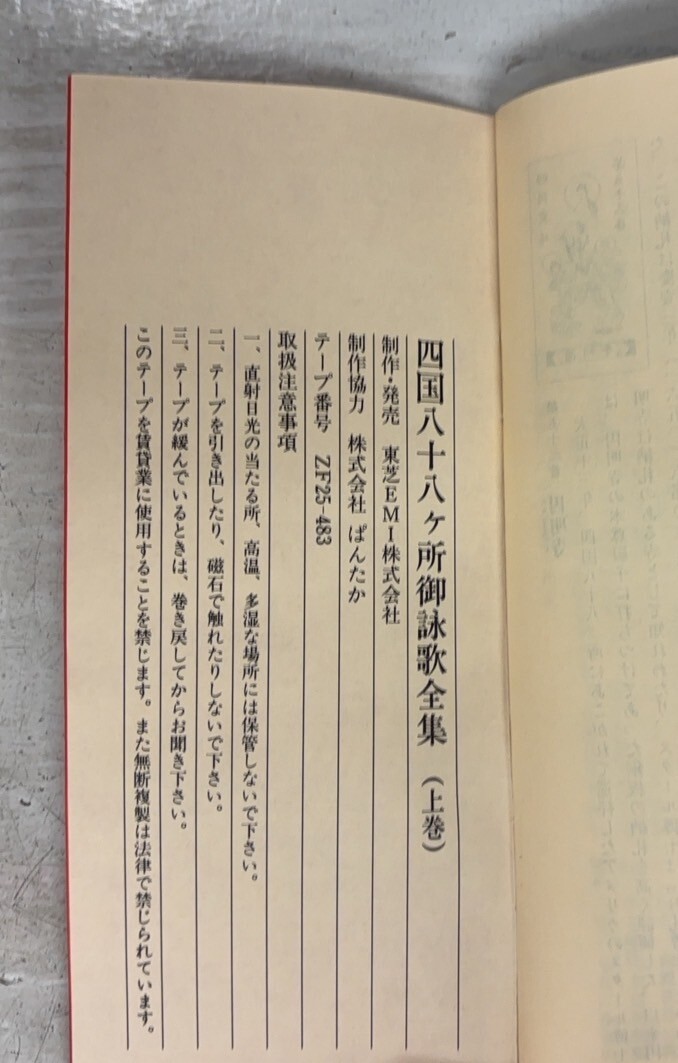 四国八十八ヶ所御詠歌全集　（上巻）
制作・発売　東芝EMI株式会社
制作協力　株式会社 ぱんたか
テープ番号　ZF25-483
取扱注意事項
一、直射日光の当たる所、高温、多湿な場所には保管しないで下さい。
二、テープを引き出したり、磁石で触れたりしないで下さい。
三、テープが緩んでいるときは、巻き戻してからお聞き下さい。
このテープを賃貸業に使用することを禁じます。また無断複製は法律で禁じられています。